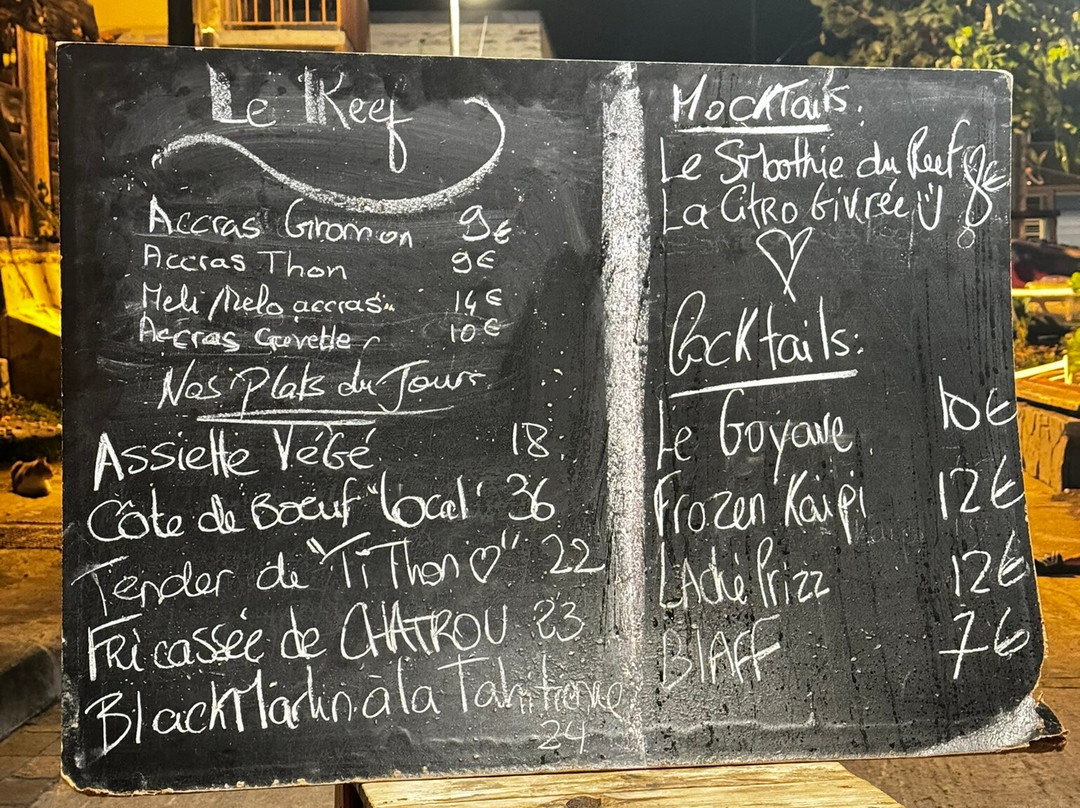 Le Reef
Accras Giromon 9€
Accras Thon 9€
Meli/Melo accras 14€
Accras Crevette 10€
Nos Plats du Jour
Assiette Végé 18
Côte de Boeuf "local" 36
Tender de "Ti Thon ♡" 22
Fricassée de CHATROU 23
Black Marlin à la Tahitienne
24
Mocktails:
Le Smoothie du Reef 8€
La Citro Givrée
Cocktails:
Le Goyave 10€
Frozen Kaipi 12€
Prizz 12€
BLAFF 7€